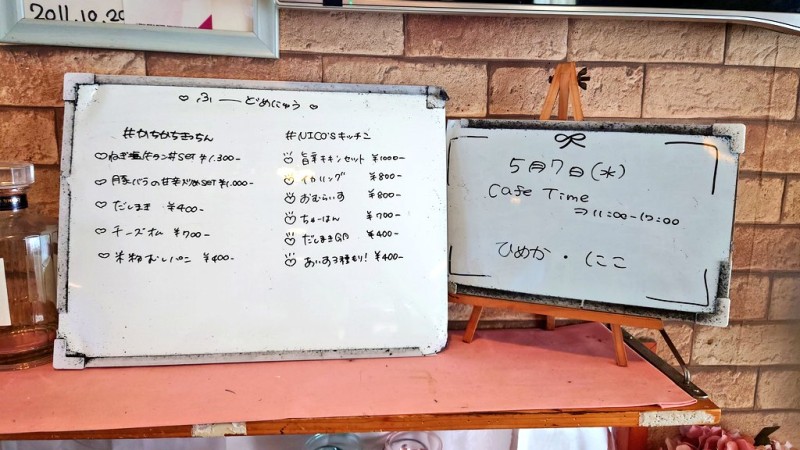 2011.10.20
♡ ふーどめにゅう ♡
#かちかちきっちん
♡ねぎ塩牛タン丼SET ¥1.300-
♡豚バラの甘辛炒めSET ¥1.000-
♡だしまき ¥400-
♡チーズオム ¥700-
♡米粉むしパン ¥400-
#NICO'Sキッチン
旨辛チキンセット ¥1000-
イカリング ¥800-
おむらいす ¥800-
ちゃーはん ¥700-
だしまき ¥400-
あいす3種もり! ¥400-
5月7日(水)
Cafe Time
⇒11:00-17:00
ひめか・にこ